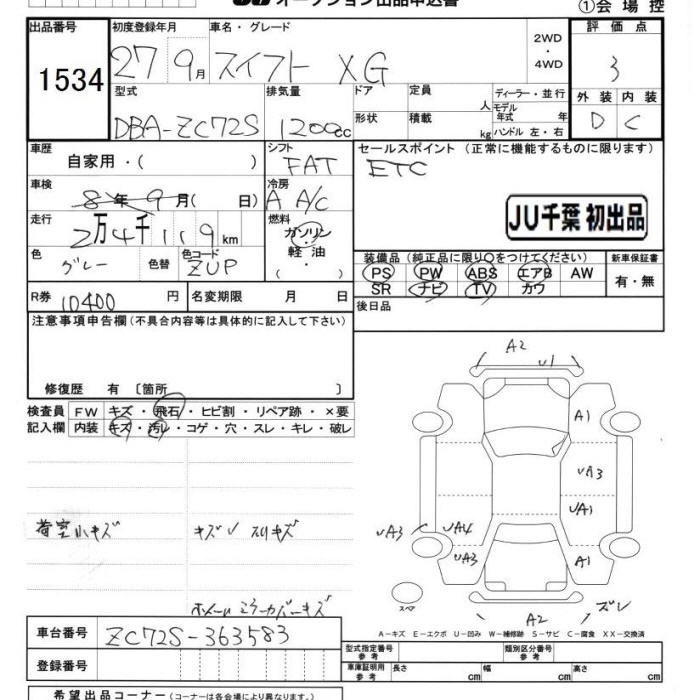 JU オークション出品申込書
①会場控
出品番号 初度登録年月 車名・グレード 評価点
1534 27 9月 スイフト XG 2WD・4WD 3
型式 排気量 ドア 定員 人 ディーラー・並行 外装 内装
DBA-ZC72S 1200cc 形状 積載 kg モデル年式 年 ハンドル 左・右 D C
車歴 自家用・( ) シフト FAT セールスポイント (正常に機能するものに限ります)
ETC
車検 8年 9月( 日) 冷房 A A/C
JU千葉 初出品
走行 2万4千119km 燃料 ガソリン・軽油・( )
色 グレー 色替 色コード ZUP
装備品 (純正品に限り○をつけてください) 新車保証書
PS PW ABS エアB AW 有・無
SR ナビ TV カワ
R券 10400円 名変期限 月 日 後日品
注意事項申告欄 (不具合内容等は具体的に記入して下さい)
修復歴 有 〔箇所 〕
検査員 FW キズ・飛石・ヒビ割・リペア跡・×要
記入欄 内装 キズ・汚レ・コゲ・穴・スレ・キレ・破レ
荷室小キズ キズ
ホイール ミラーカバーキズ
A2
U1
A1
UA3
UA1
UA3 UA4
UA3 A1
スペア
A2 ズレ
A-キズ E-エクボ U-凹み W-補修跡 S-サビ C-腐食 XX-交換済
車台番号 ZC72S-363583
型式指定番号 参考 類別区分番号 参考
登録番号 車庫証明用 参考 長さ cm 幅 cm 高さ cm
希望出品コーナー (コーナーは各会場により異なります。)